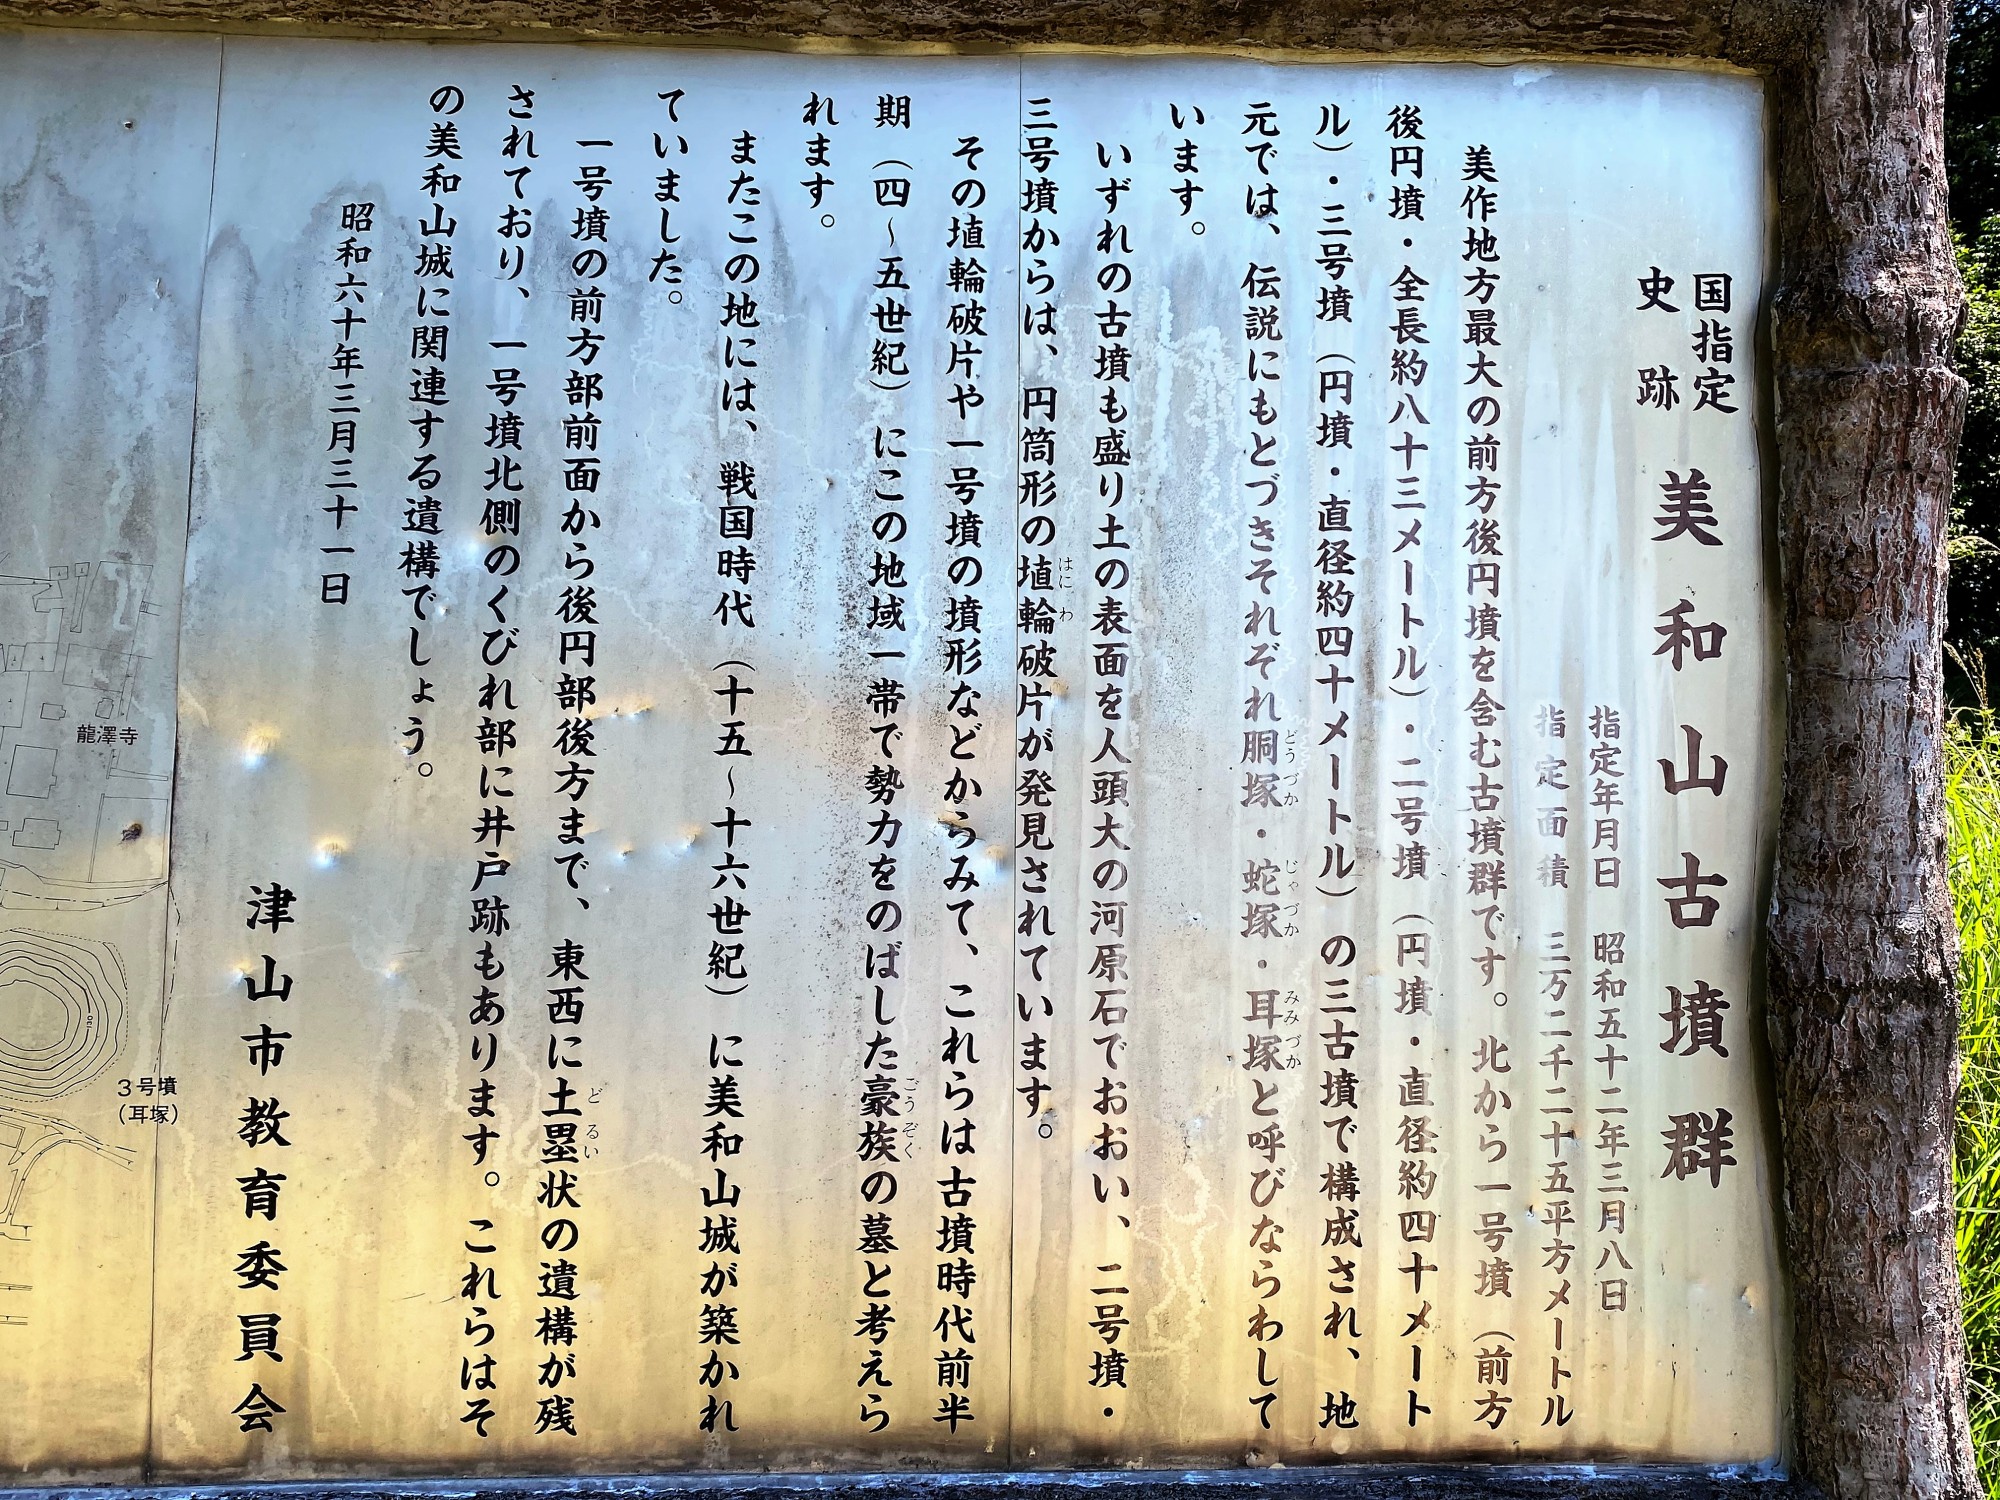 国指定
史跡
美和山古墳群
指定年月日　昭和五十二年三月八日
指定面積　三万二千二十五平方メートル
美作地方最大の前方後円墳を含む古墳群です。北から一号墳（前方
後円墳・全長約八十三メートル）・二号墳（円墳・直径約四十メート
ル）・三号墳（円墳・直径約四十メートル）の三古墳で構成され、地
元では、伝説にもとづきそれぞれ胴塚・蛇塚・耳塚と呼びならわして
どうづか　じゃづか　みみづか
います。
いずれの古墳も盛り土の表面を人頭大の河原石でおおい、二号墳・
三号墳からは、円筒形の埴輪破片が発見されています。
はにわ
その埴輪破片や一号墳の墳形などからみて、これらは古墳時代前半
期（四～五世紀）にこの地域一帯で勢力をのばした豪族の墓と考えら
ごうぞく
れます。
またこの地には、戦国時代（十五～十六世紀）に美和山城が築かれ
ていました。
一号墳の前方部前面から後円部後方まで、東西に土塁状の遺構が残
どるい
されており、一号墳北側のくびれ部に井戸跡もあります。これらはそ
の美和山城に関連する遺構でしょう。
昭和六十年三月三十一日
津山市教育委員会
龍澤寺
3号墳
（耳塚）